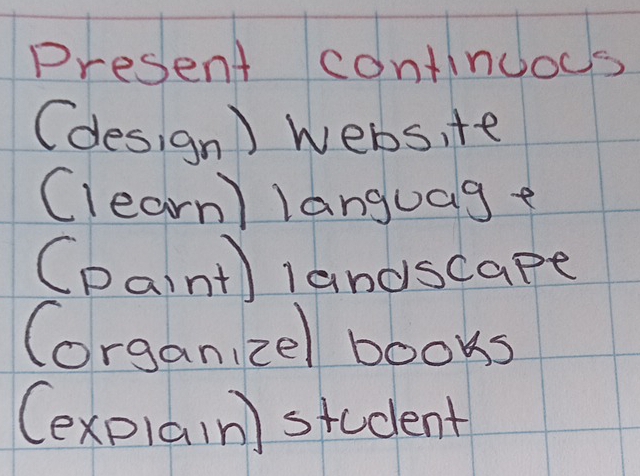 Present continuous
(design) website
(learn) language
(paint) landscape
(organize) books
(explain) student